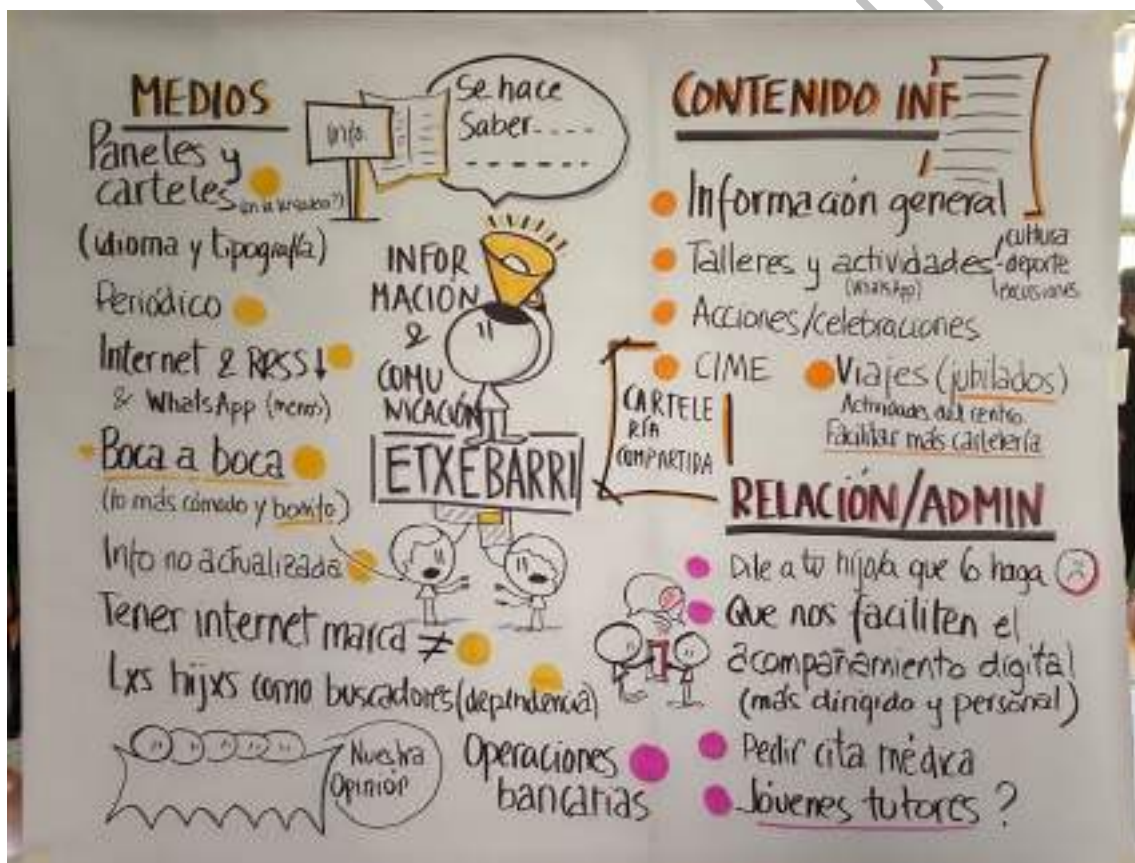 MEDIOS
Paneles y
carteles
(idioma y tipografía)
Periódico
Internet & RRSS↓
& WhatsApp (menos)
Boca a boca
(lo más cómodo y bonito)
Info no actualizada
Tener internet marca ≠
Lxs hijxs como buscadores (dependencia)
Nuestra
Opinión
Info.
Se hace
Saber....
INFOR
MACIÓN
&
COMU
NICACIÓN
ETXEBARRI
Operaciones
bancarias
CONTENIDO INF
Información general
Talleres y actividades
(WhatsApp)
cultura
deporte
excursiones
Acciones/celebraciones
CIME
CARTELE
RÍA
COMPARTIDA
Viajes (jubilados)
Actividades del centro
Facilitar más cartelería
RELACIÓN/ADMIN
Dile a tu hijo/a que lo haga
Que nos faciliten el
acompañamiento digital
(más dirigido y personal)
Pedir cita médica
Jóvenes tutores?